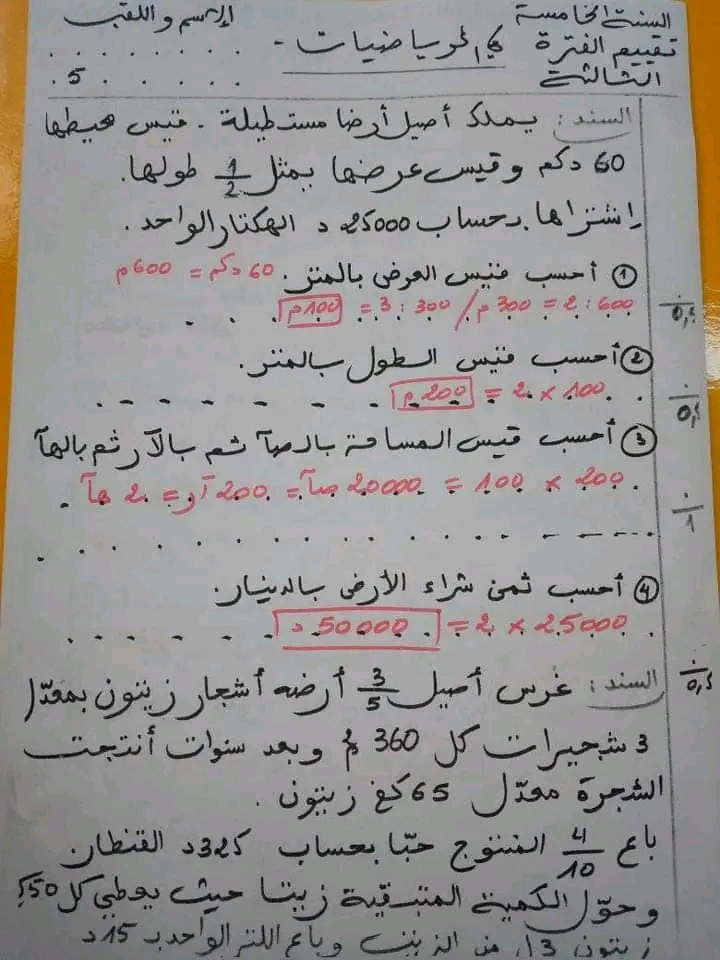 السنة الخامسة
تقييم الفترة
الثالثة
في الرياضيات -
الإسم و اللقب
5
السند: يملك أصيل أرضا مستطيلة . قيس محيطها
60 دكم و قيس عرضها يمثل 1/2 طولها.
اشتراها بحساب 25000 د الهكتار الواحد.
① أحسب قيس العرض بالمتر. 60 دكم = 600 م
600 : 2 = 300 م / 300 : 3 = 100 م
0,5
② أحسب قيس الطول بالمتر.
100 × 2 = 200 م
0,5
③ أحسب قيس المساحة بالصآ ثم بالآر ثم بالهآ
200 × 100 = 20000 صآ = 200 آر = 2 هآ
1
④ أحسب ثمن شراء الأرض بالدينار.
25000 × 2 = 50000 د
0,5
السند: غرس أصيل 3/5 أرضه أشجار زيتون بمعدل
3 شجيرات كل 360 م² و بعد سنوات أنتجت
الشجرة معدل 65 كغ زيتون .
باع 4/10 المنتوج حبا بحساب 325 د القنطار
و حول الكمية المتبقية زيتا حيث يعطي كل 50 كغ
زيتون 13 ل من الزيت و باع اللتر الواحد بـ 15 د